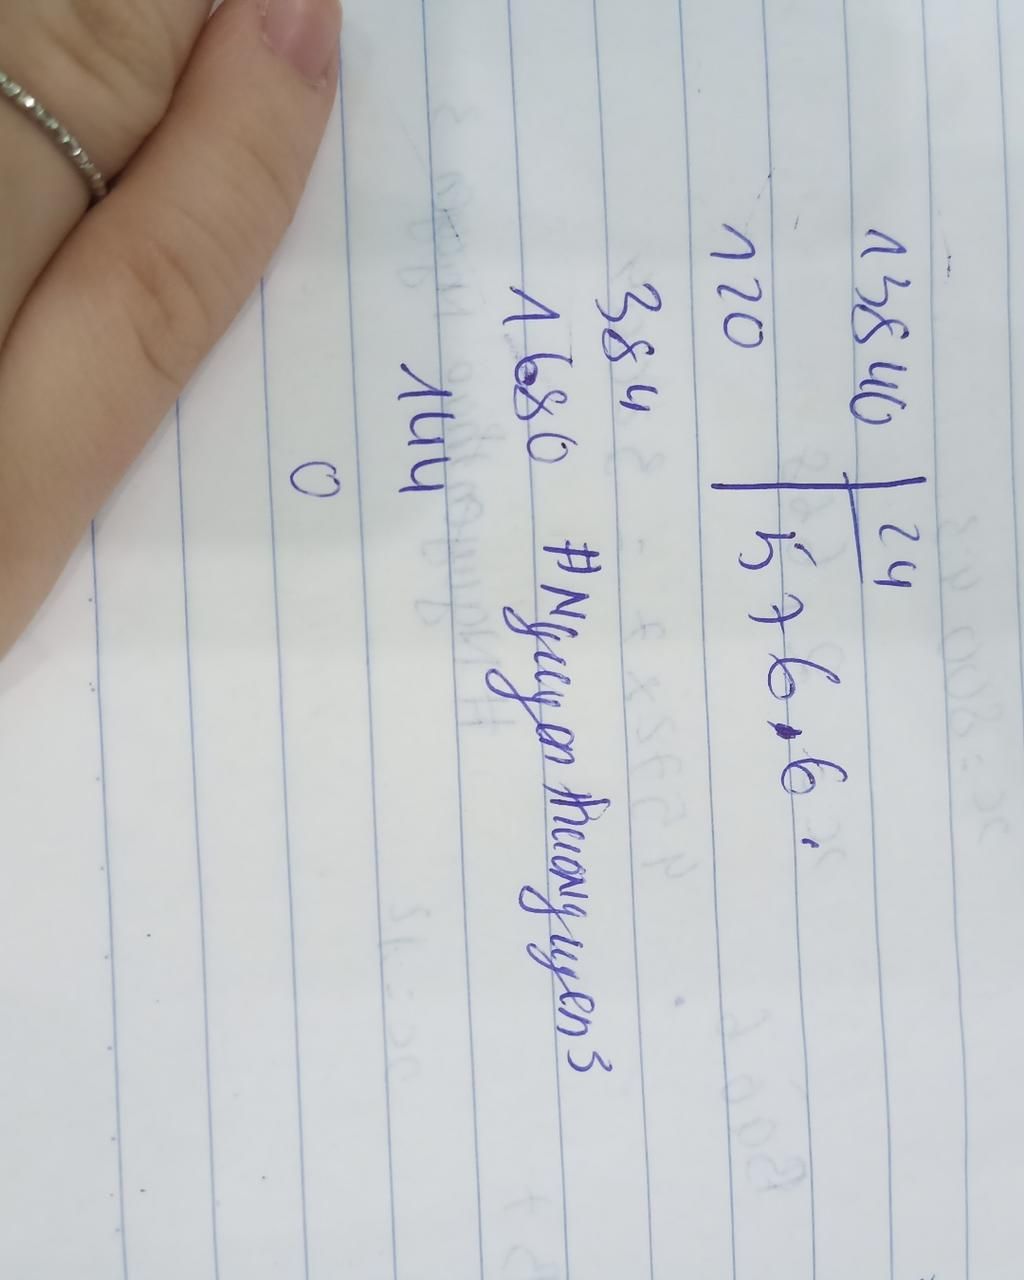 13840 24
120 576.6.
384
1680
#Nguyen thuonguyen3
144
0